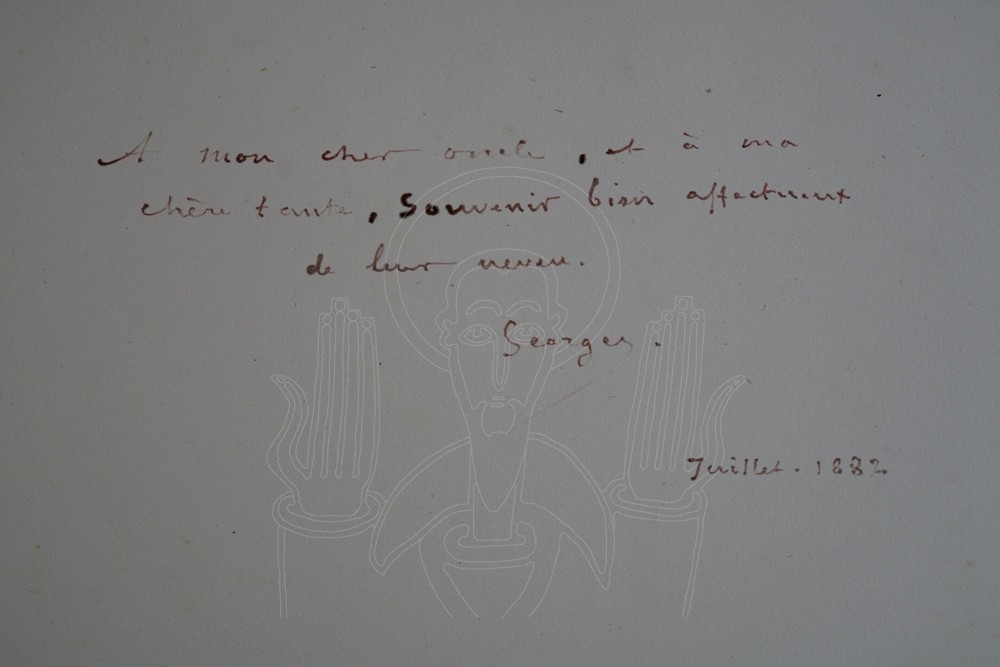 A mon cher oncle, et à ma
chère tante, Souvenir bien affectueux
de leur neveu.
Georges.
Juillet. 1882